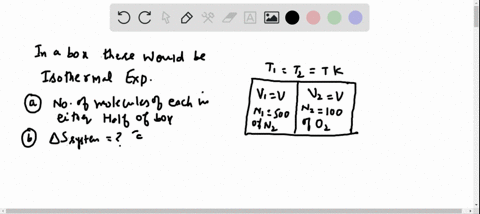 In a box there would be
Isothermal Exp.
(a) No. of molecules of each in
either Half of box
(b) ΔSsystem = ?
T1 = T2 = T K
V1 = V
N1 = 500
of N2
V2 = V
N2 = 100
of O2